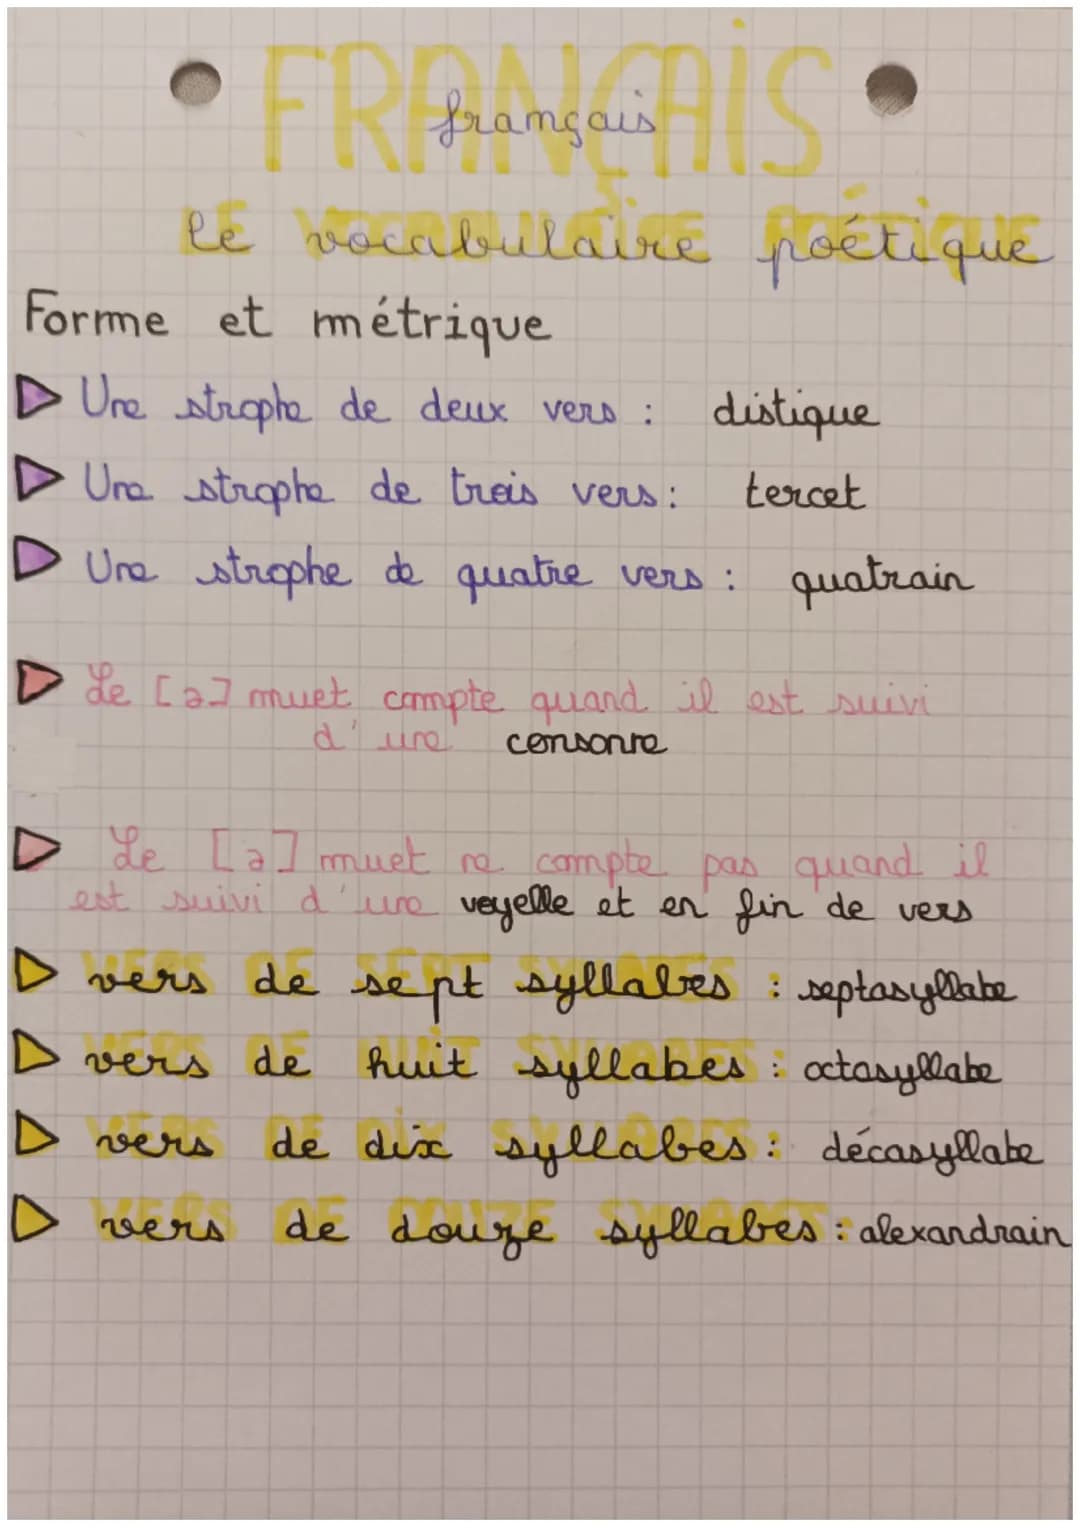 FRANÇAIS
français
LE VOCABULAIRE POÉTIQUE
le vocabulaire poétique
Forme et métrique
Une strophe de deux vers : distique
Une strophe de trois vers : tercet
Une strophe de quatre vers : quatrain
Le [ə] muet compte quand il est suivi
d'une consonne
Le [ə] muet ne compte pas quand il
est suivi d'une voyelle et en fin de vers
VERS DE SEPT SYLLABES
vers de sept syllabes : septasyllabe
VERS DE HUIT SYLLABES
vers de huit syllabes : octasyllabe
VERS DE DIX SYLLABES
vers de dix syllabes : décasyllabe
VERS DE DOUZE SYLLABES
vers de douze syllabes : alexandrain